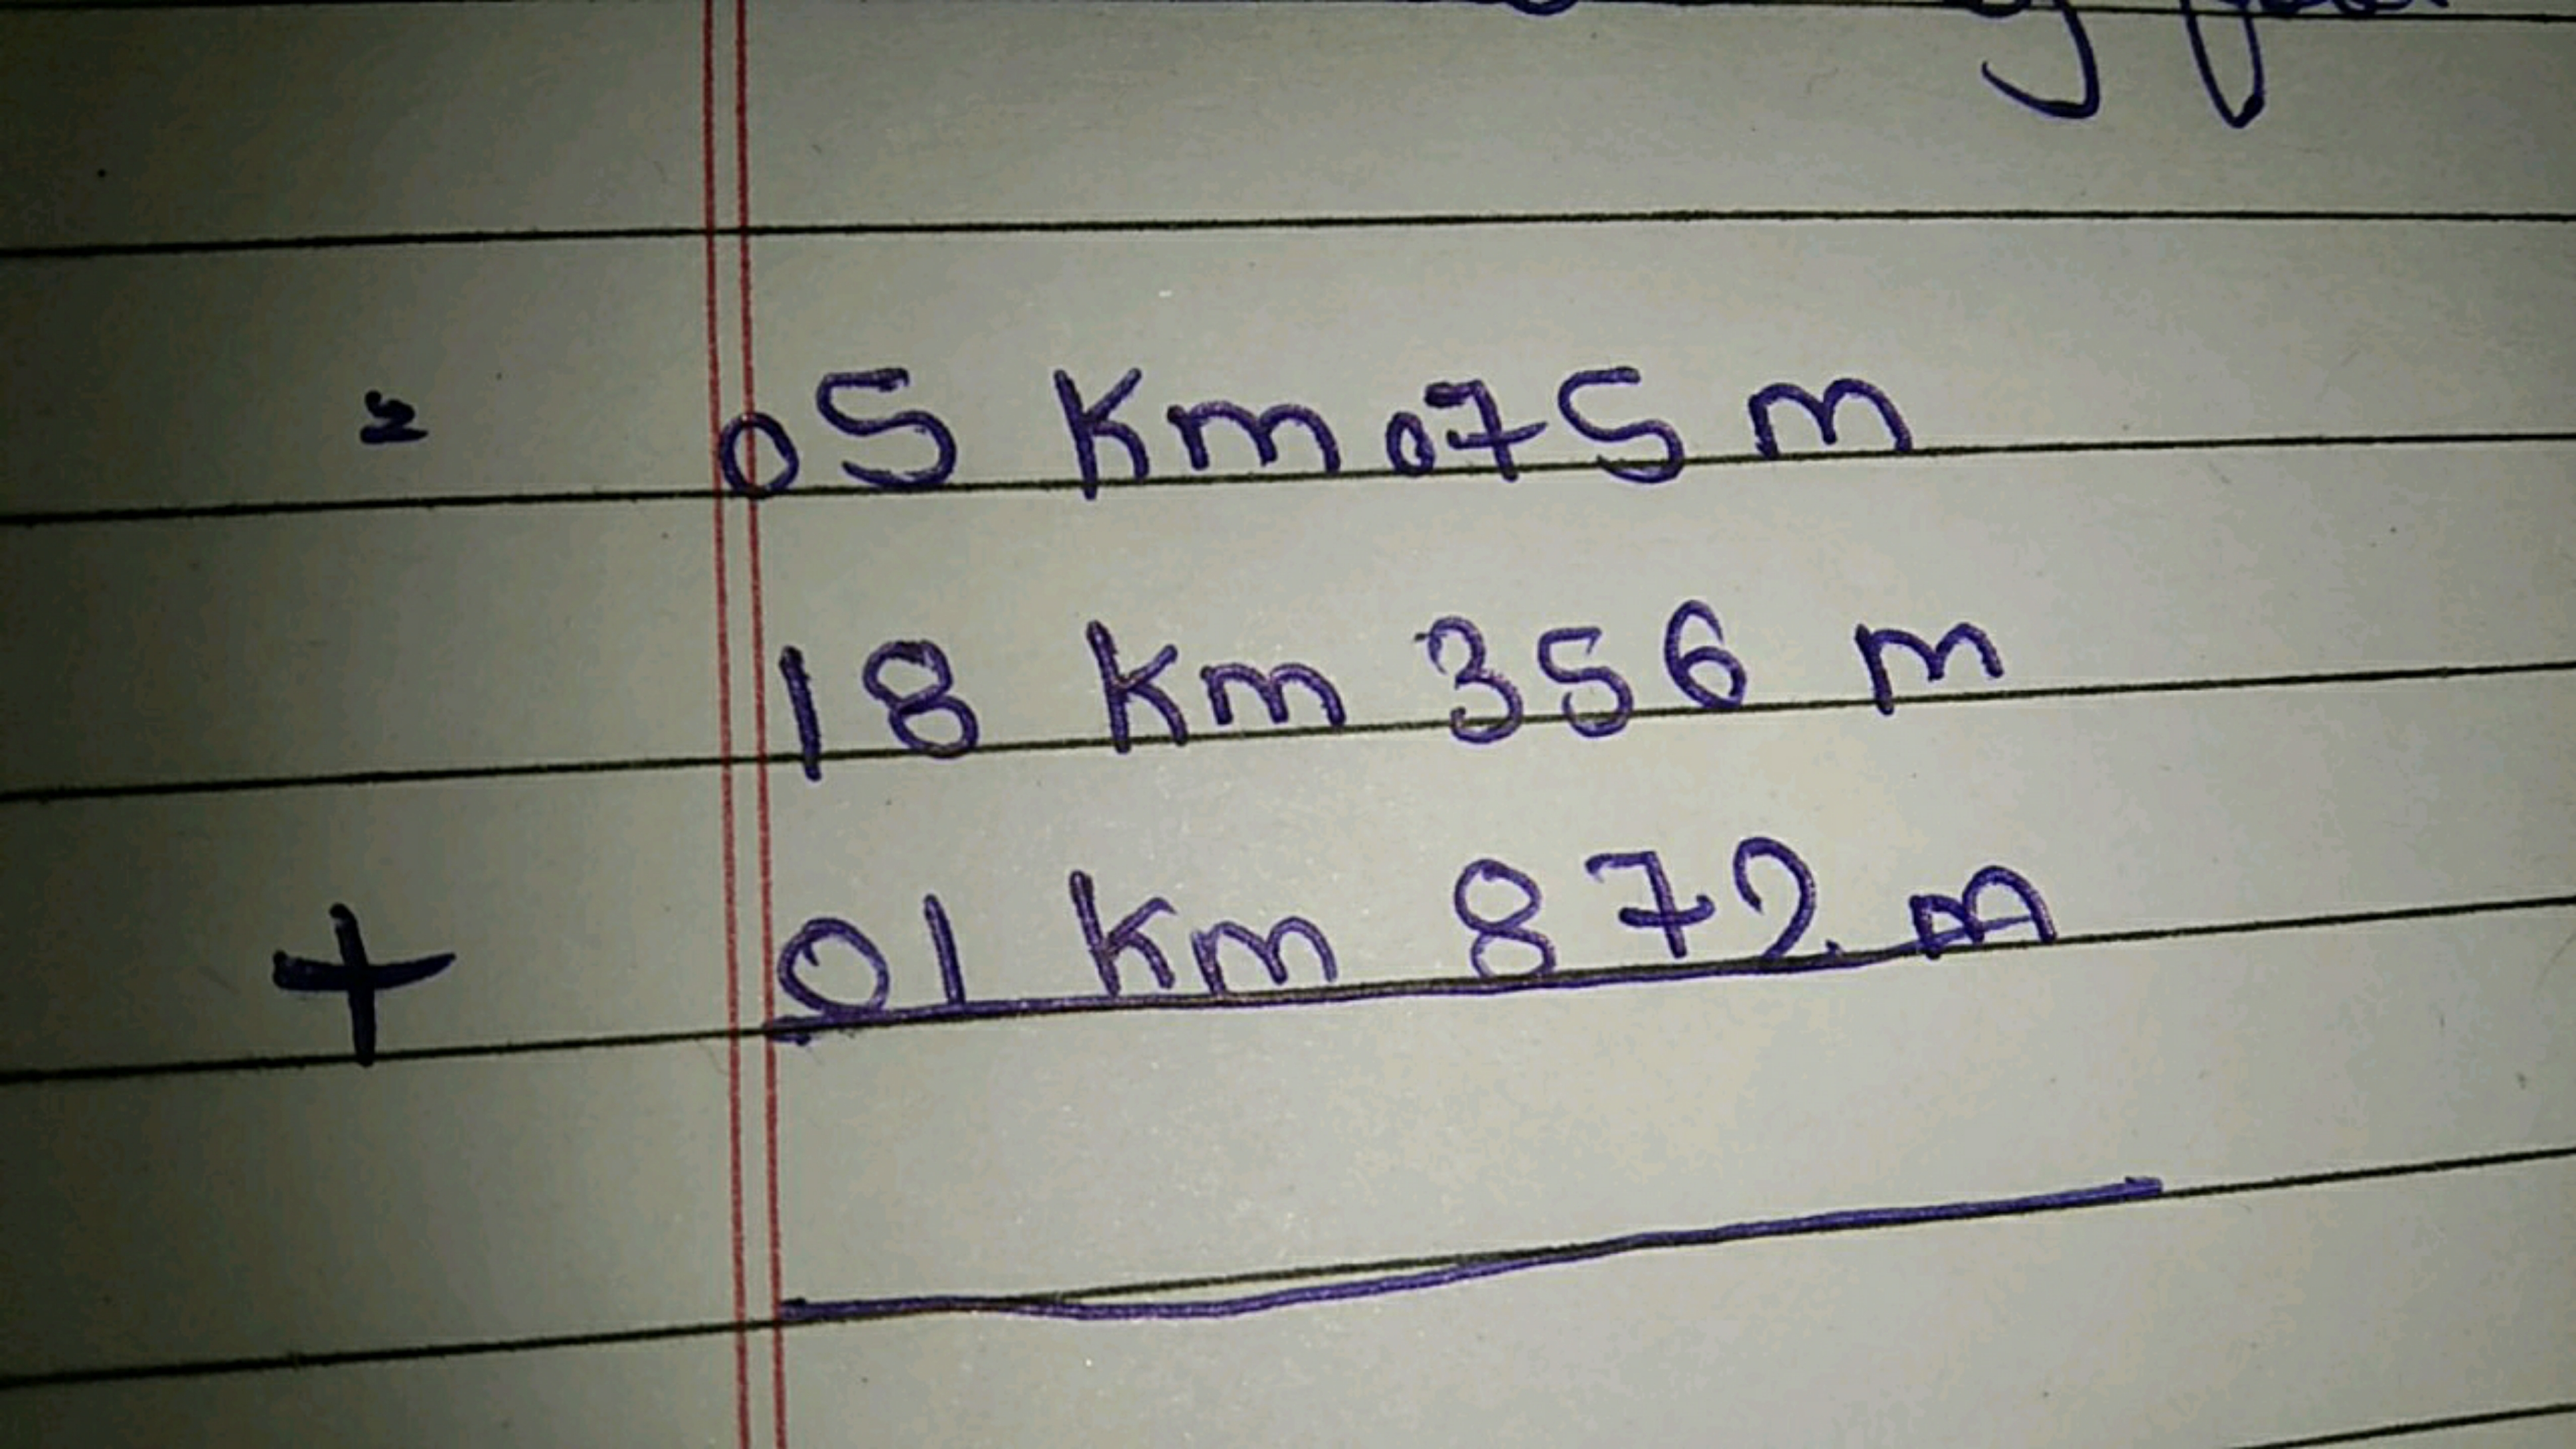 = 05 Km 075 m
18 Km 356 m
+ 01 Km 872 m